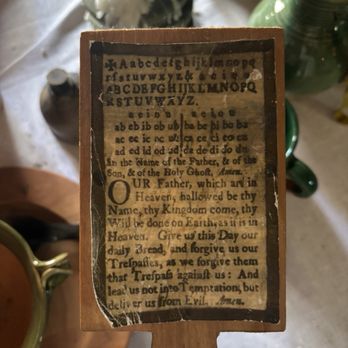 ✠ A a b c d e f g h i j k l m n o p q
r s t u v w x y z & a e i o u
A B C D E F G H I J K L M N O P Q
R S T U V W X Y Z.
a e i o u | a e i o u
ab eb ib ob ub | ba be bi bo bu
ac ec ic oc uc | ca ce ci co cu
ad ed id od ud | da de di do du
In the Name of the Father, & of the
Son, & of the Holy Ghost, Amen.
OUR Father, which art in
Heaven, hallowed be thy
Name, thy Kingdom come, thy
Will be done on Earth, as it is in
Heaven. Give us this Day our
daily Bread, and forgive us our
Treſpaſſes, as we forgive them
that Treſpaſs againſt us: And
lead us not into Temptation, but
deliver us from Evil. Amen.